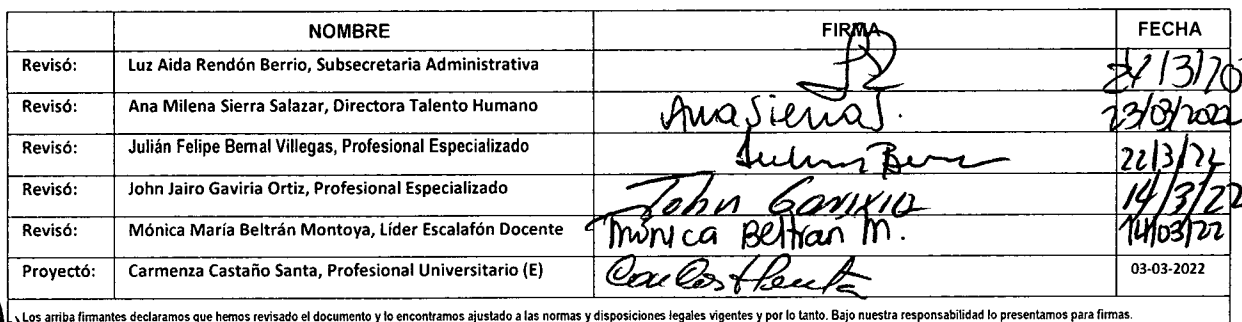 NOMBRE FIRMA FECHA
Revisó: Luz Aida Rendón Berrio, Subsecretaria Administrativa
Revisó: Ana Milena Sierra Salazar, Directora Talento Humano Ana Sierra S. 23/03/2022
Revisó: Julián Felipe Bernal Villegas, Profesional Especializado 22/3/22
Revisó: John Jairo Gaviria Ortiz, Profesional Especializado John Gaviria 14/3/22
Revisó: Mónica María Beltrán Montoya, Líder Escalafón Docente Mónica Beltran M. 14/03/22
Proyectó: Carmenza Castaño Santa, Profesional Universitario (E) 03-03-2022
Los arriba firmantes declaramos que hemos revisado el documento y lo encontramos ajustado a las normas y disposiciones legales vigentes y por lo tanto. Bajo nuestra responsabilidad lo presentamos para firmas.